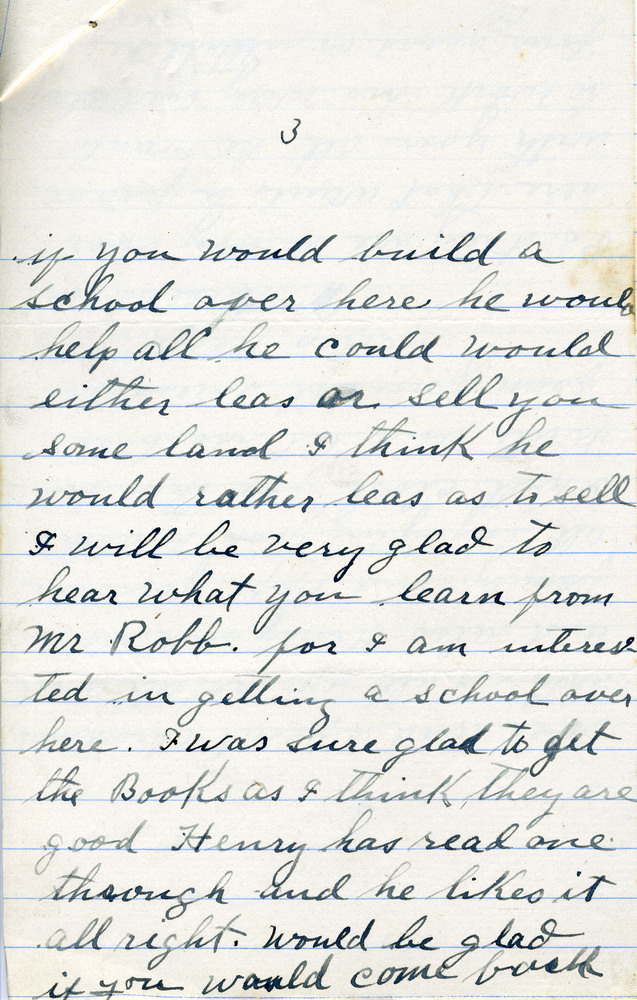 3
if you would build a
school over here he would
help all he could would
either leas or sell you
some land I think he
would rather leas as to sell
I will be very glad to
hear what you learn from
Mr Robb. for I am interes-
ted in getting a school over
here. I was sure glad to get
the Books as I think they are
good Henry has read one
through and he likes it
all right. would be glad
if you would come back